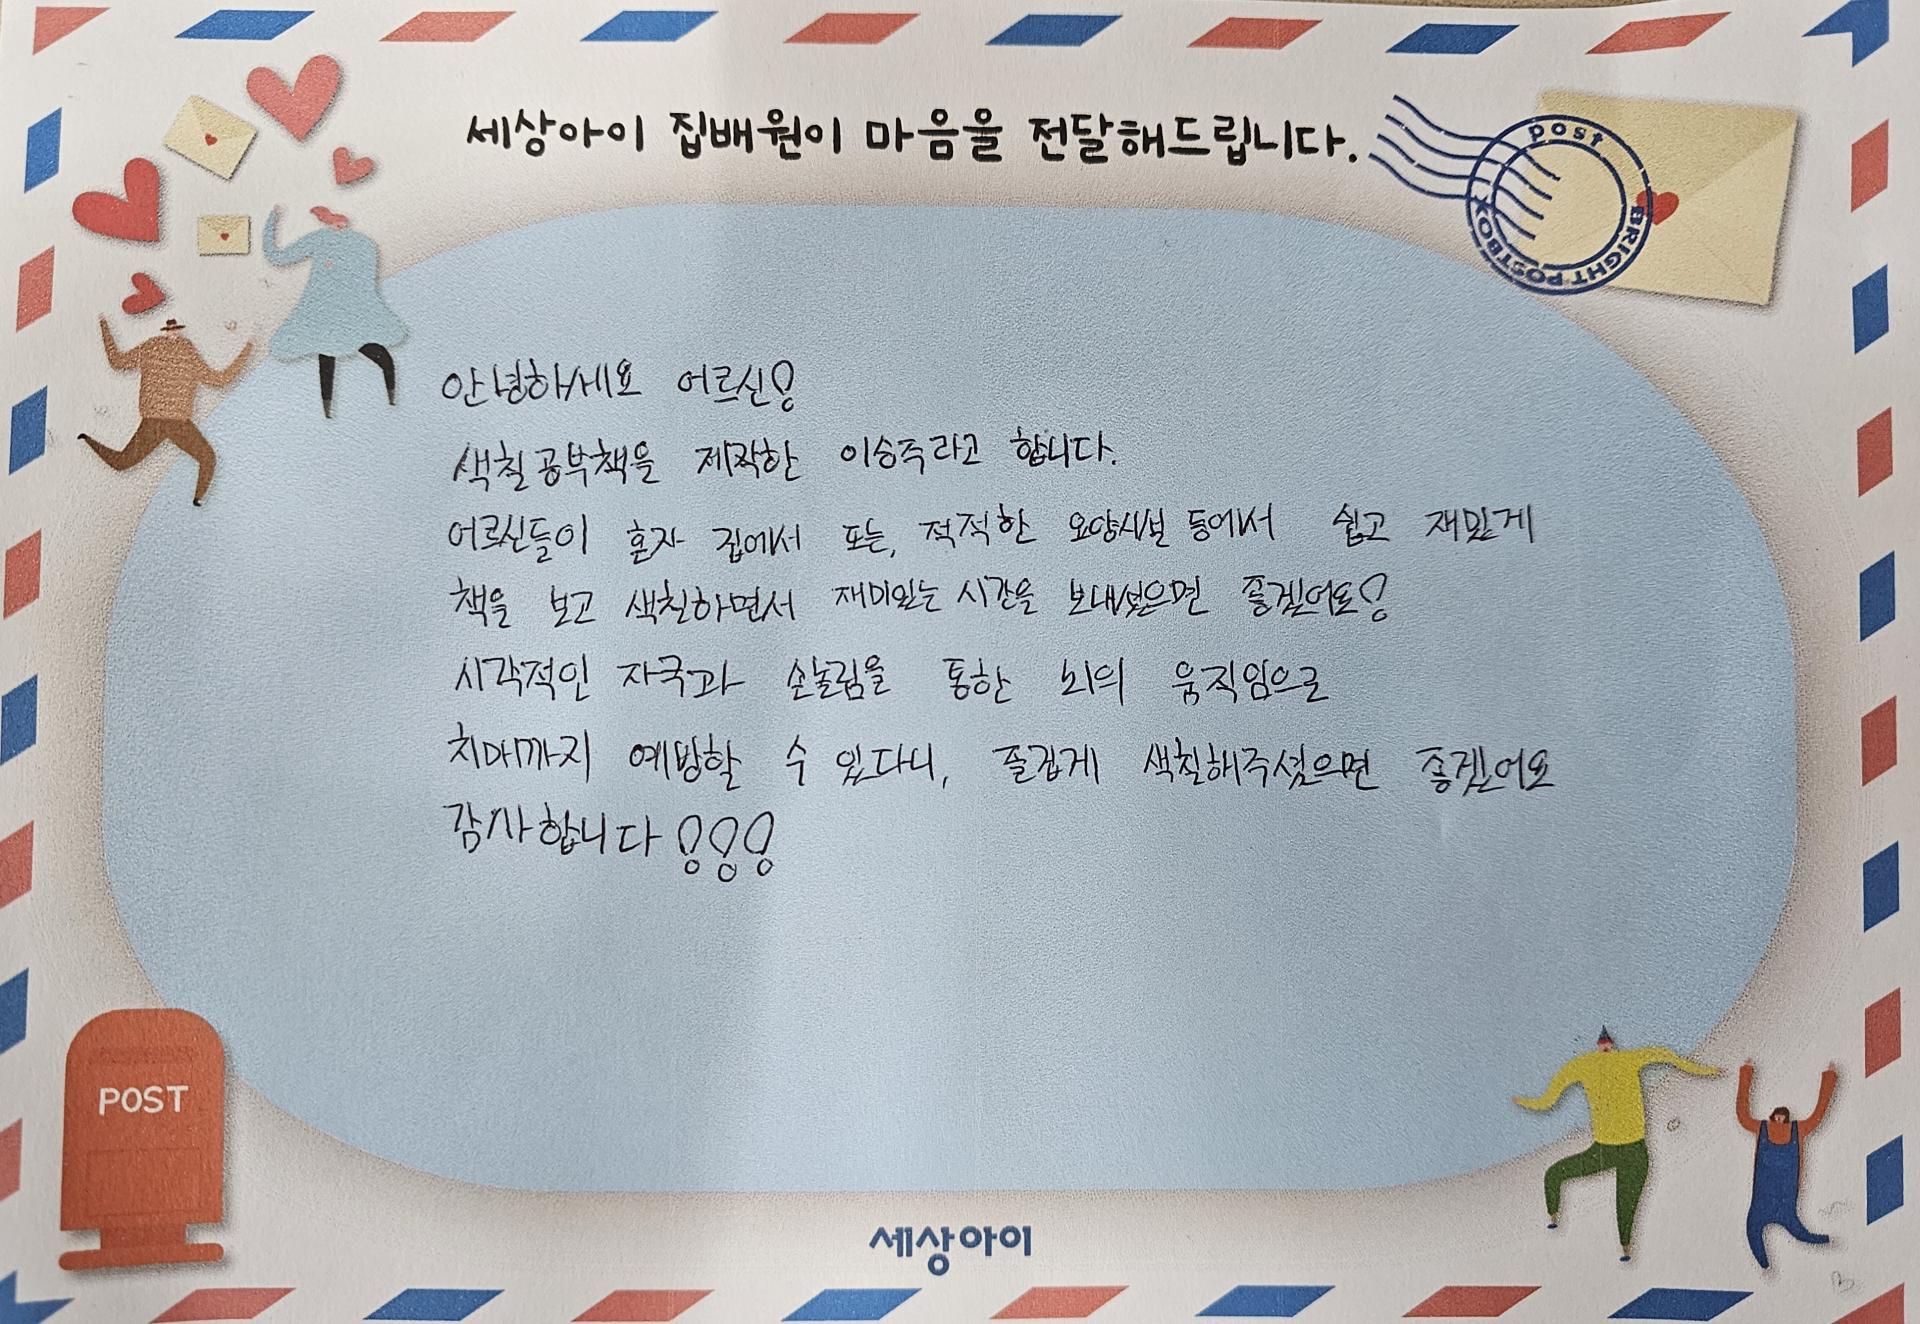 세상아이 집배원이 마음을 전달해드립니다.
post
BRIGHT POSTBOX
안녕하세요 어르신!
색칠공부책을 제작한 이승주라고 합니다.
어르신들이 혼자 집에서 또는, 적적한 요양시설 등에서 쉽고 재밌게
책을 보고 색칠하면서 재미있는 시간을 보내셨으면 좋겠어요!
시각적인 자극과 손놀림을 통한 뇌의 움직임으로
치매까지 예방할 수 있다니, 즐겁게 색칠해주셨으면 좋겠어요
감사합니다!!!
POST
세상아이